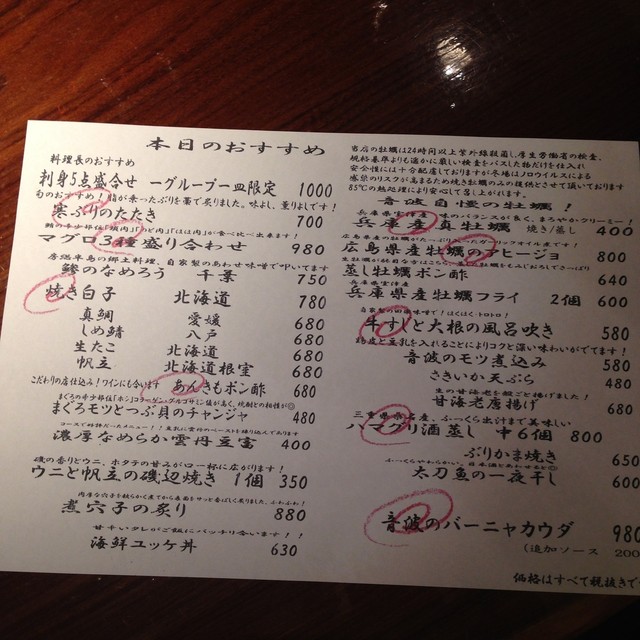 本日のおすすめ
料理長のおすすめ
刺身5点盛合せ 一グループ一皿限定 1000
旬のおすすめ！脂が乗ったぶりを藁で炙りました。味よし、薫りよしです！
寒ぶりのたたき 700
食べ比べ出来ます！
マグロ3種盛り合わせ 980
房総半島の郷土料理、自家製のあわせ味噌で叩いてます
鯵のなめろう 千葉 750
焼き白子 北海道 780
真鯛 愛媛 680
しめ鯖 八戸 680
生たこ 北海道 680
帆立 北海道根室 680
こだわりの店仕込み！ワインにも合います あんきもポン酢 680
まぐろの希少部位「ホシ」コラーゲン・グルコサミン値が高く、焼酎との相性が◎
まぐろモツとつぶ貝のチャンジャ 480
濃厚なめらか雲丹豆富 400
磯の香りとウニ、ホタテの甘みがロ一杯に広がります！
ウニと帆立の磯辺焼き 1個 350
煮穴子の炙り 880
甘辛いタレがご飯にバッチリ合います！！
海鮮ユッケ丼 630
当店の牡蠣は24時間以上紫外線殺菌し、厚生労働省の検査、
規格基準よりも遥かに厳しい検査をパスした物だけを仕入れ
安全性には十分配慮しておりますが冬場はノロウイルスによる
感染のリスクが高まるため焼き牡蠣のみの提供とさせて頂いております
85℃の熱処理により安心して召し上がれます。
音波自慢の牡蠣！
兵庫県室津産 味のバランスが良く、まろやかクリーミー！
兵庫産真牡蠣 焼き/蒸し 400
広島県産牡蠣のアヒージョ 800
蒸し牡蠣ポン酢 640
兵庫県室津産
兵庫県産牡蠣フライ 2個 600
牛すじと大根の風呂吹き 580
豆乳を入れることによりコクと深い味わいがでてます！
音波のモツ煮込み 580
さきいか天ぷら 480
甘海老唐揚げ 680
三重県桑名産、ふっくら出汁まで美味しい
ハマグリ酒蒸し 中6個 800
ぶりかま焼き 650
太刀魚の一夜干し 600
音波のバーニャカウダ 980
（追加ソース 200
価格はすべて税抜きで